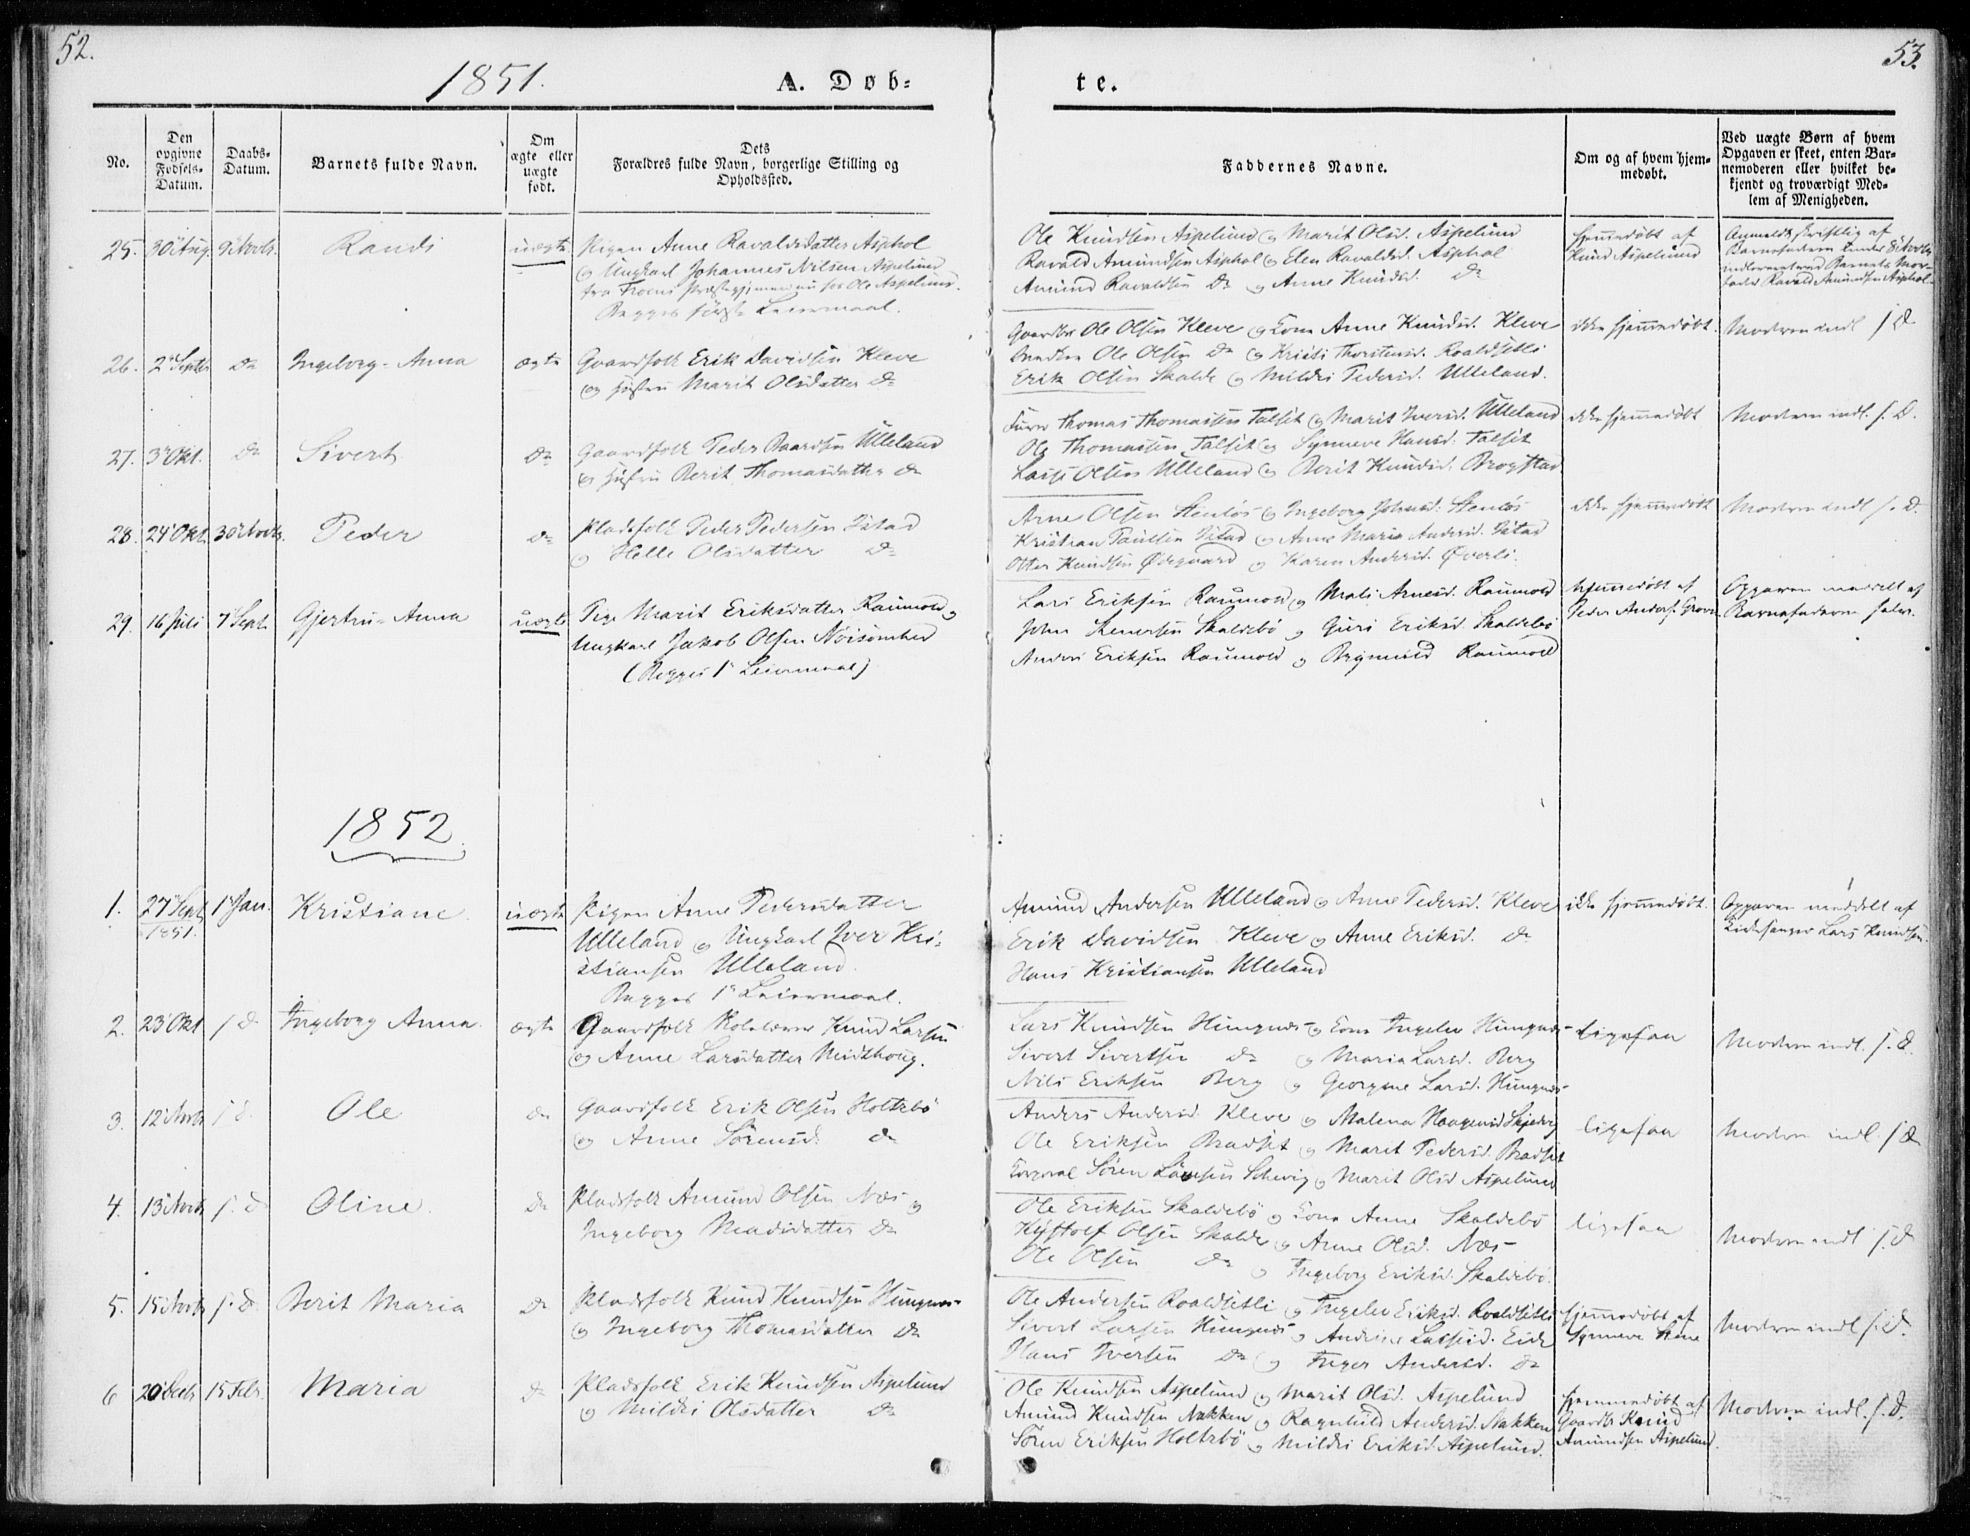 52.
53.
1851.
A. Døb-
te.
No.
Den opgivne Fødsels-Datum.
Daabs-Datum.
Barnets fulde Navn.
Om ægte eller uægte født.
Dets
Forældres fulde Navn, borgerlige Stilling og
Opholdssted.
Faddernes Navne.
Om og af hvem hjem-
medøbt.
Ved uægte Børn af hvem
Opgaven er skeet, enten Bar-
nemoderen eller hvilket be-
kjendt og troværdigt Med-
lem af Menigheden.
25. 30 Aug. 9 Novbr. Randi uægte Pigen Anne Ravaldsdatter Asphol
og Ungkarl Johannes Nilsen Aspelund
fra Præstegj. nu hos Ole Aspelund.
Begges første Leiermaal.
Ole Knudsen Aspelund og Marit Olsd. Aspelund
Ravald Amundsen Asphol og Elen Ravaldsd. Asphol
Amund Ravaldsen Do og Anne Knudsd. Do
hjemmedøbt af
Knud Aspelund
Anmeldt skriftlig af
Barnefaderen
Barnets Mor-
fader Ravald Amundsen Asphol
26. 2 Septbr. Do Ingeborg-Anna ægte Gaardfolk Erik Davidsen Kleve
og Hustru Marit Olsdatter Do
Gaardbr. Ole Olsen Kleve og Kone Anne Knudsd. Kleve
Ole Olsen Do og Kristi Thorstensd. Roaldsetli
Erik Olsen Skalde og Mildri Pedersd. Ulleland.
ikke hjemmedøbt.
Modren indl. s. D.
27. 3 Okt. Do Sivert Do Gaardfolk Peder Baardsen Ulleland
og Hustru Berit Thomasdatter Do
Thomas Thomassen Talset og Marit Iversd. Ulleland
Ole Thomassen Talset og Synneve Hansd. Talset
Lars Olsen Ulleland og Berit Knudsd. Brogstad
ikke hjemmedøbt
Modren indl. s. D.
28. 24 Okt. 30 Novbr. Peder Do Pladsfolk Peder Pedersen Istad
og Helle Olsdatter Do
Arne Olsen Stenløs og Ingeborg Johnsd. Stenløs
Kristian Paulsen Istad og Anne Maria Andersd. Istad
Otter Knudsen Ødegaard og Karen Andersd. Øverli.
ikke hjemmedøbt
Modren indl. s. D.
29. 16 Juli 7 Sept. Gjertru-Anna uægte Pige Marit Eriksdatter Raumold og
Ungkarl Jakob Olsen Nøisomhed
(Begges 1e Leiermaal)
Lars Eriksen Raumold og Mali Arnesd. Raumold
John Skaldebø og Guri Eriksd. Skaldebø
Anders Eriksen Raumold og Raumold
hjemmedøbt af
Peder Anders. Grova
Opgaven meddelt af
Barnefaderen selv.
1852.
1. 27 Sept. 1851. 1 Jan. Kristiane uægte Pigen Anne Pedersdatter
Ulleland og Ungkarl Iver Kri-
stiansen Ulleland.
Begges 1e Leiermaal.
Amund Andersen Ulleland og Anne Pedersd. Kleve
Erik Davidsen Kleve og Anne Eriksd. Do
Hans Kristiansen Ulleland
ikke hjemmedøbt.
Opgaven meddelt af
Kirkesanger Lars Knudsen.
2. 23 Okt. s. D. Ingeborg Anna. ægte Gaardfolk Skolelærer Knud Larsen
og Anne Larsdatter Midthoug.
Lars Knudsen Hungnes og Kone Ingelev Hungnes
Sivert Sivertsen Do og Maria Larsd. Berg
Nils Eriksen Berg og Georgine Larsd. Hungnes
ligesaa
Modren indl. s. D.
3. 12 Novbr. s. D. Ole Do Gaardfolk Erik Olsen Holtebø
og Anne Sørensd. Do
Anders Andersd. Kleve og Malena
Ole Eriksen Bradset og Marit Pedersd. Bradset
Corporal Søren og Marit Olsd. Aspelund
ligesaa
Modren indl. s. D.
4. 13 Novbr. s. D. Oline. Do Pladsfolk Amund Olsen Næs og
Ingeborg Madsdatter Do
Ole Eriksen Skaldebø og Kone Anne Skaldebø
Olsen Skalde og Anne Olsd. Næs
Ole Olsen Do og Ingeborg Eriksd. Skaldebø.
ligesaa
Modren indl. s. D.
5. 15 Novbr. s. D. Berit Maria Do Pladsfolk Knud Knudsen Hungnes
og Ingeborg Thomasdatter Do
Ole Andersen Roaldsetli og Ingelev Eriksd. Roaldsetli
Sivert Larsen Hungnes og Andrine Eide
Hans Iversen Do og Inger Andersd. Do
hjemmedøbt af
Synneve
Modren indl. s. D.
6 20 Decbr. 15 Febr. Maria Do Pladsfolk Erik Knudsen Aspelund
og Mildri Olsdatter Do
Ole Knudsen Aspelund og Marit Olsd. Aspelund
Amund Knudsen Nakken og Ragnhild Andersd. Nakken
Søren Eriksen Holtebø og Mildri Eriksd. Aspelund.
hjemmedøbt af
Gaardbr. Knud
Amundsen Aspelund.
Modren indl. s. D.